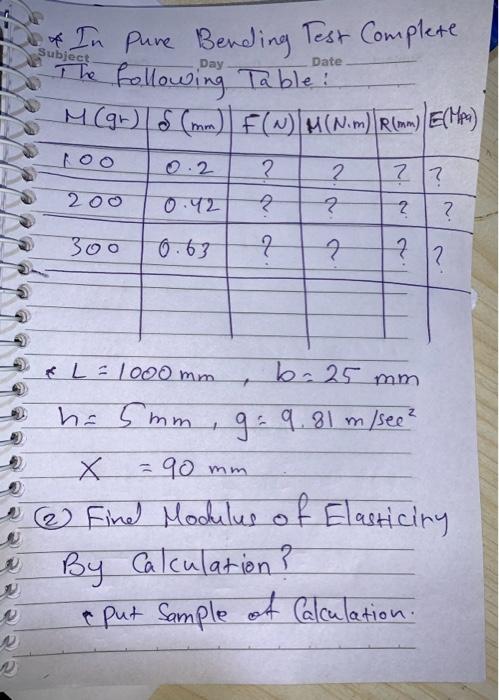 * In Pure Bending Test Complete
Subject Day Date
The following Table:
M(gr) δ(mm) F(N) M(N.m) R(mm) E(Mpa)
100 0.2 ? ? ? ?
200 0.42 ? ? ? ?
300 0.63 ? ? ? ?
* L = 1000 mm , b = 25 mm
h = 5 mm , g = 9.81 m/sec²
X = 90 mm
(2) Find Modulus of Elasticiny
By Calculation?
* Put Sample of Calculation.